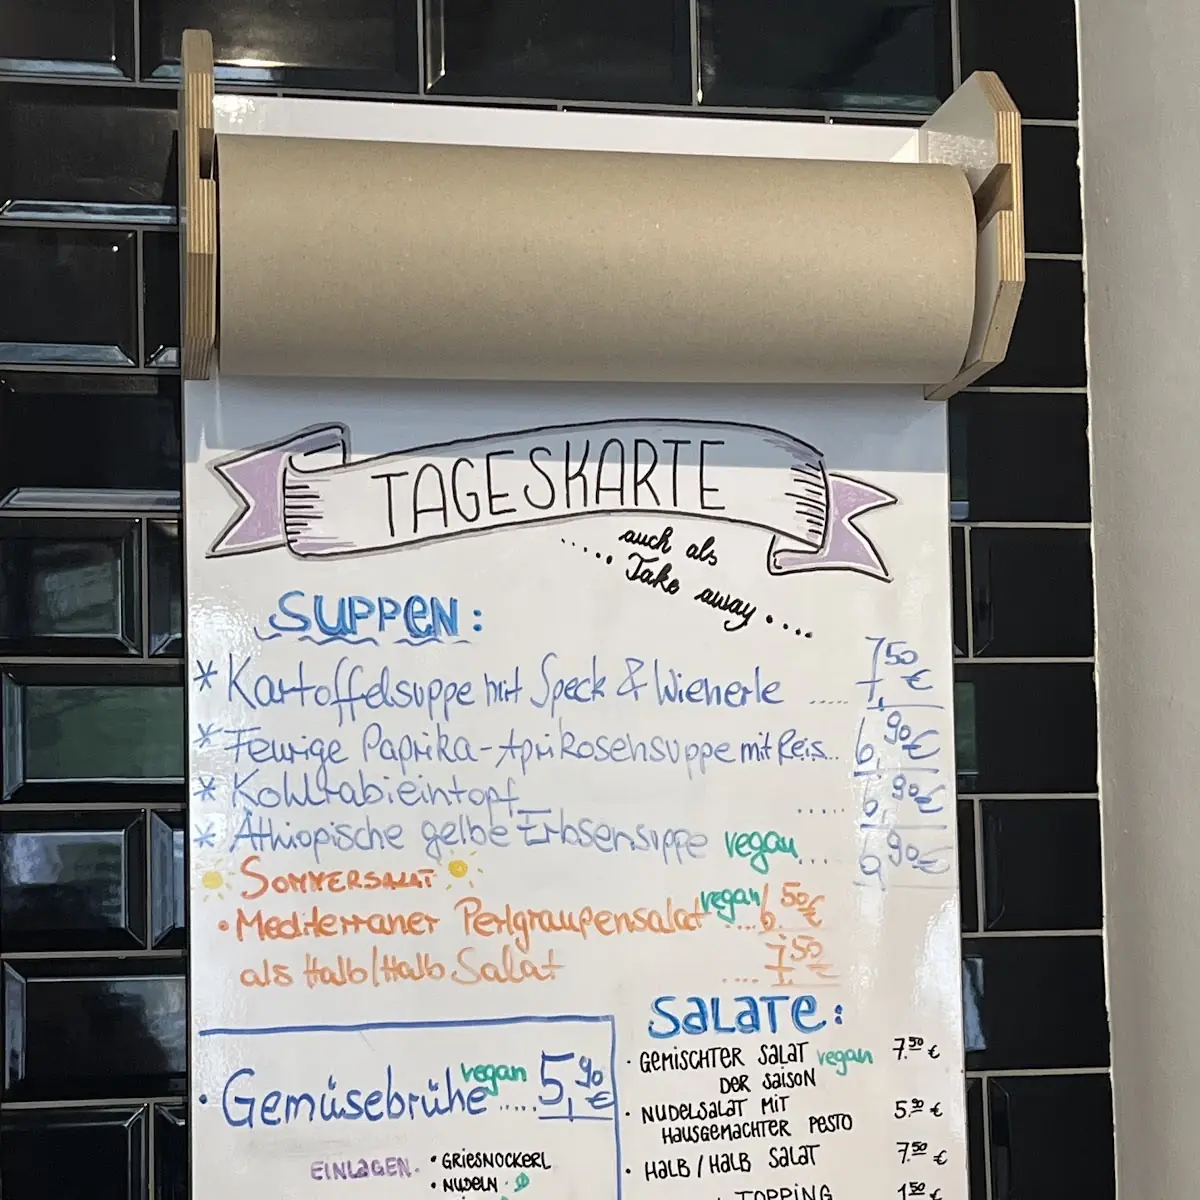 TAGESKARTE
..... auch als
Take away....
SUPPEN:
* Kartoffelsuppe mit Speck & Wienerle ..... 7,50 €
* Feurige Paprika-Aprikosensuppe mit Reis... 6,90 €
* Kohlrabieintopf ..... 6,90 €
* Äthiopische gelbe Erbsensuppe vegan... 6,90 €
SOMMERSALAT
• Mediterraner Perlgraupensalat vegan .... 6,50 €
als Halb/Halb Salat .... 7,50 €
• Gemüsebrühe vegan ..... 5,90 €
EINLAGEN. • GRIESNOCKERL
• NUDELN
SALATE:
• GEMISCHTER SALAT vegan 7.50 €
DER SAISON
• NUDELSALAT MIT 5.90 €
HAUSGEMACHTER PESTO
• HALB / HALB SALAT 7.50 €
TOPPING 1.50 €